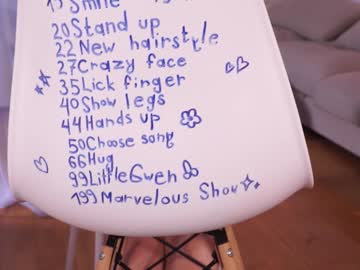 15 Smile
20 Stand up
22 New hairstyle
27 Crazy face
35 Lick finger
40 Show legs
44 Hands up
50 Choose song
66 Hug
99 Little Gwen
199 Marvelous Show